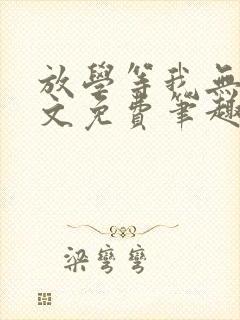 放學等我無
文免費筆趣
梁彎彎